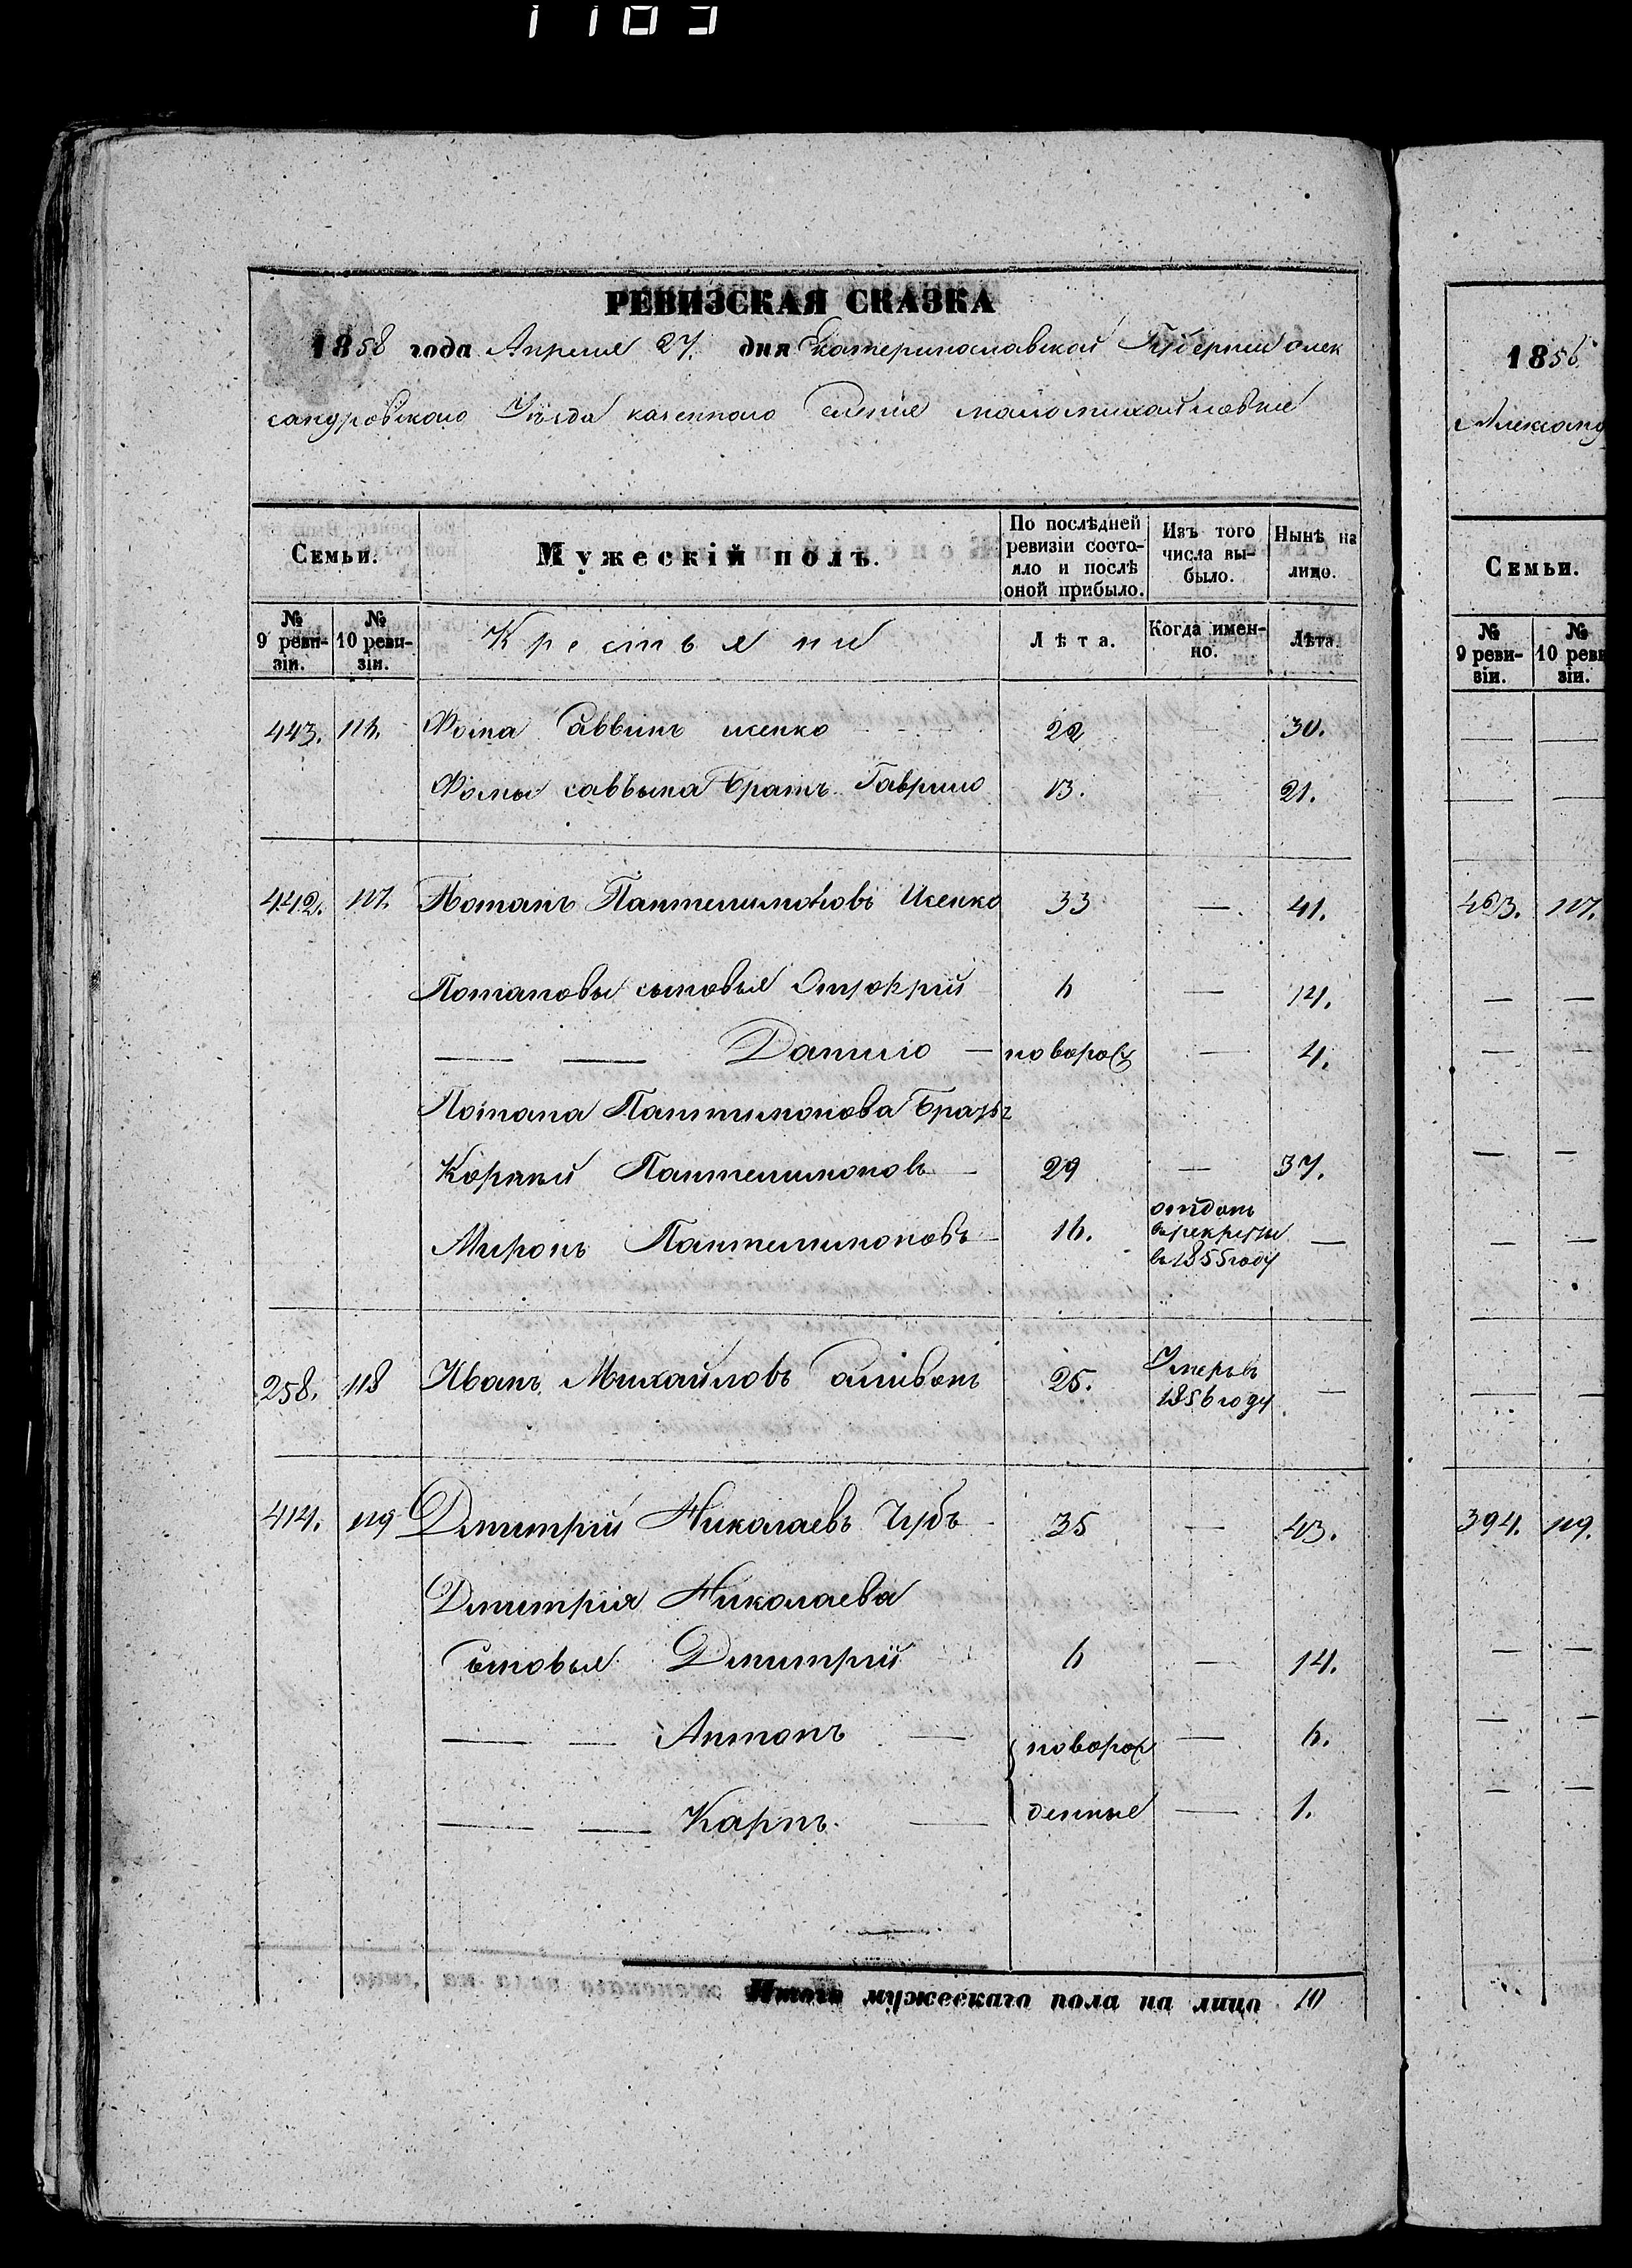 1103
РЕВИЗСКАЯ СКАЗКА
1858 года Апреля 27. дня Екатеринославской Губернии олек
сандровского Уезда казенного Селения маломихайловки
Семьи.
Мужескій полъ.
По послѣдней ревизіи состояло и послѣ оной прибыло.
Изъ того числа выбыло.
Нынѣ на лицо.
№ 9 ревизіи.
№ 10 ревизіи.
Крестьяни
Лѣта.
Когда именно.
Лѣта.
443. 116. Фома Саввинъ исенко 22 — 30.
Фомы саввына Братъ Гаврило 13. — 21.
442. 117. Потапъ Пантелимоновъ Исенко 33 — 41.
Потаповы сыновья 6 — 14.
— — Данило — новорож — 4.
Потапа Пантимонова Братъ
Корней Пантелимоновъ — 29 — 37.
Миронъ Пантелимоновъ — 16. отданъ в рекруты в 1855 году —
258. 118 Иванъ Михайловъ 25. Умеръ в 1856 году —
414. 119 Дмитрий Николаевъ Чубъ 35 — 43.
Дмитрия Николаева
Сыновья Дмитрий 6 — 14.
— — Антонъ — новорож — 6.
— — Карпъ. — денные — 1.
Итого мужескаго пола на лицо 10
1858
Александ
Семьи.
№ 9 ревизіи.
№ 10 реви зіи.
— —
— —
463. 117.
— —
— —
— —
— —
— —
394. 119.
— —
— —
— —